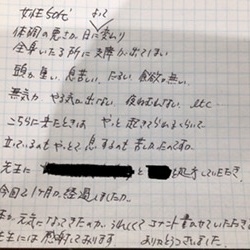 女性50代
体調の悪さが、日に よって 変わり
全身いたる所に支障が出てしまい
頭が重い、息苦しい、だるい、食欲が無い、
無気力 やる気が出ない、疲れがとれない、etc
こちらに来たときは やっと 起きてられるくらいで
立っているのもやっとで、息するのも苦しかったのです。
先生に と 処方していただき、
今回で1ヶ月が、経過しましたが、
元気になってきたのが、うれしくて コメント書かせていただき
先生には 感謝しております ありがとうございました。